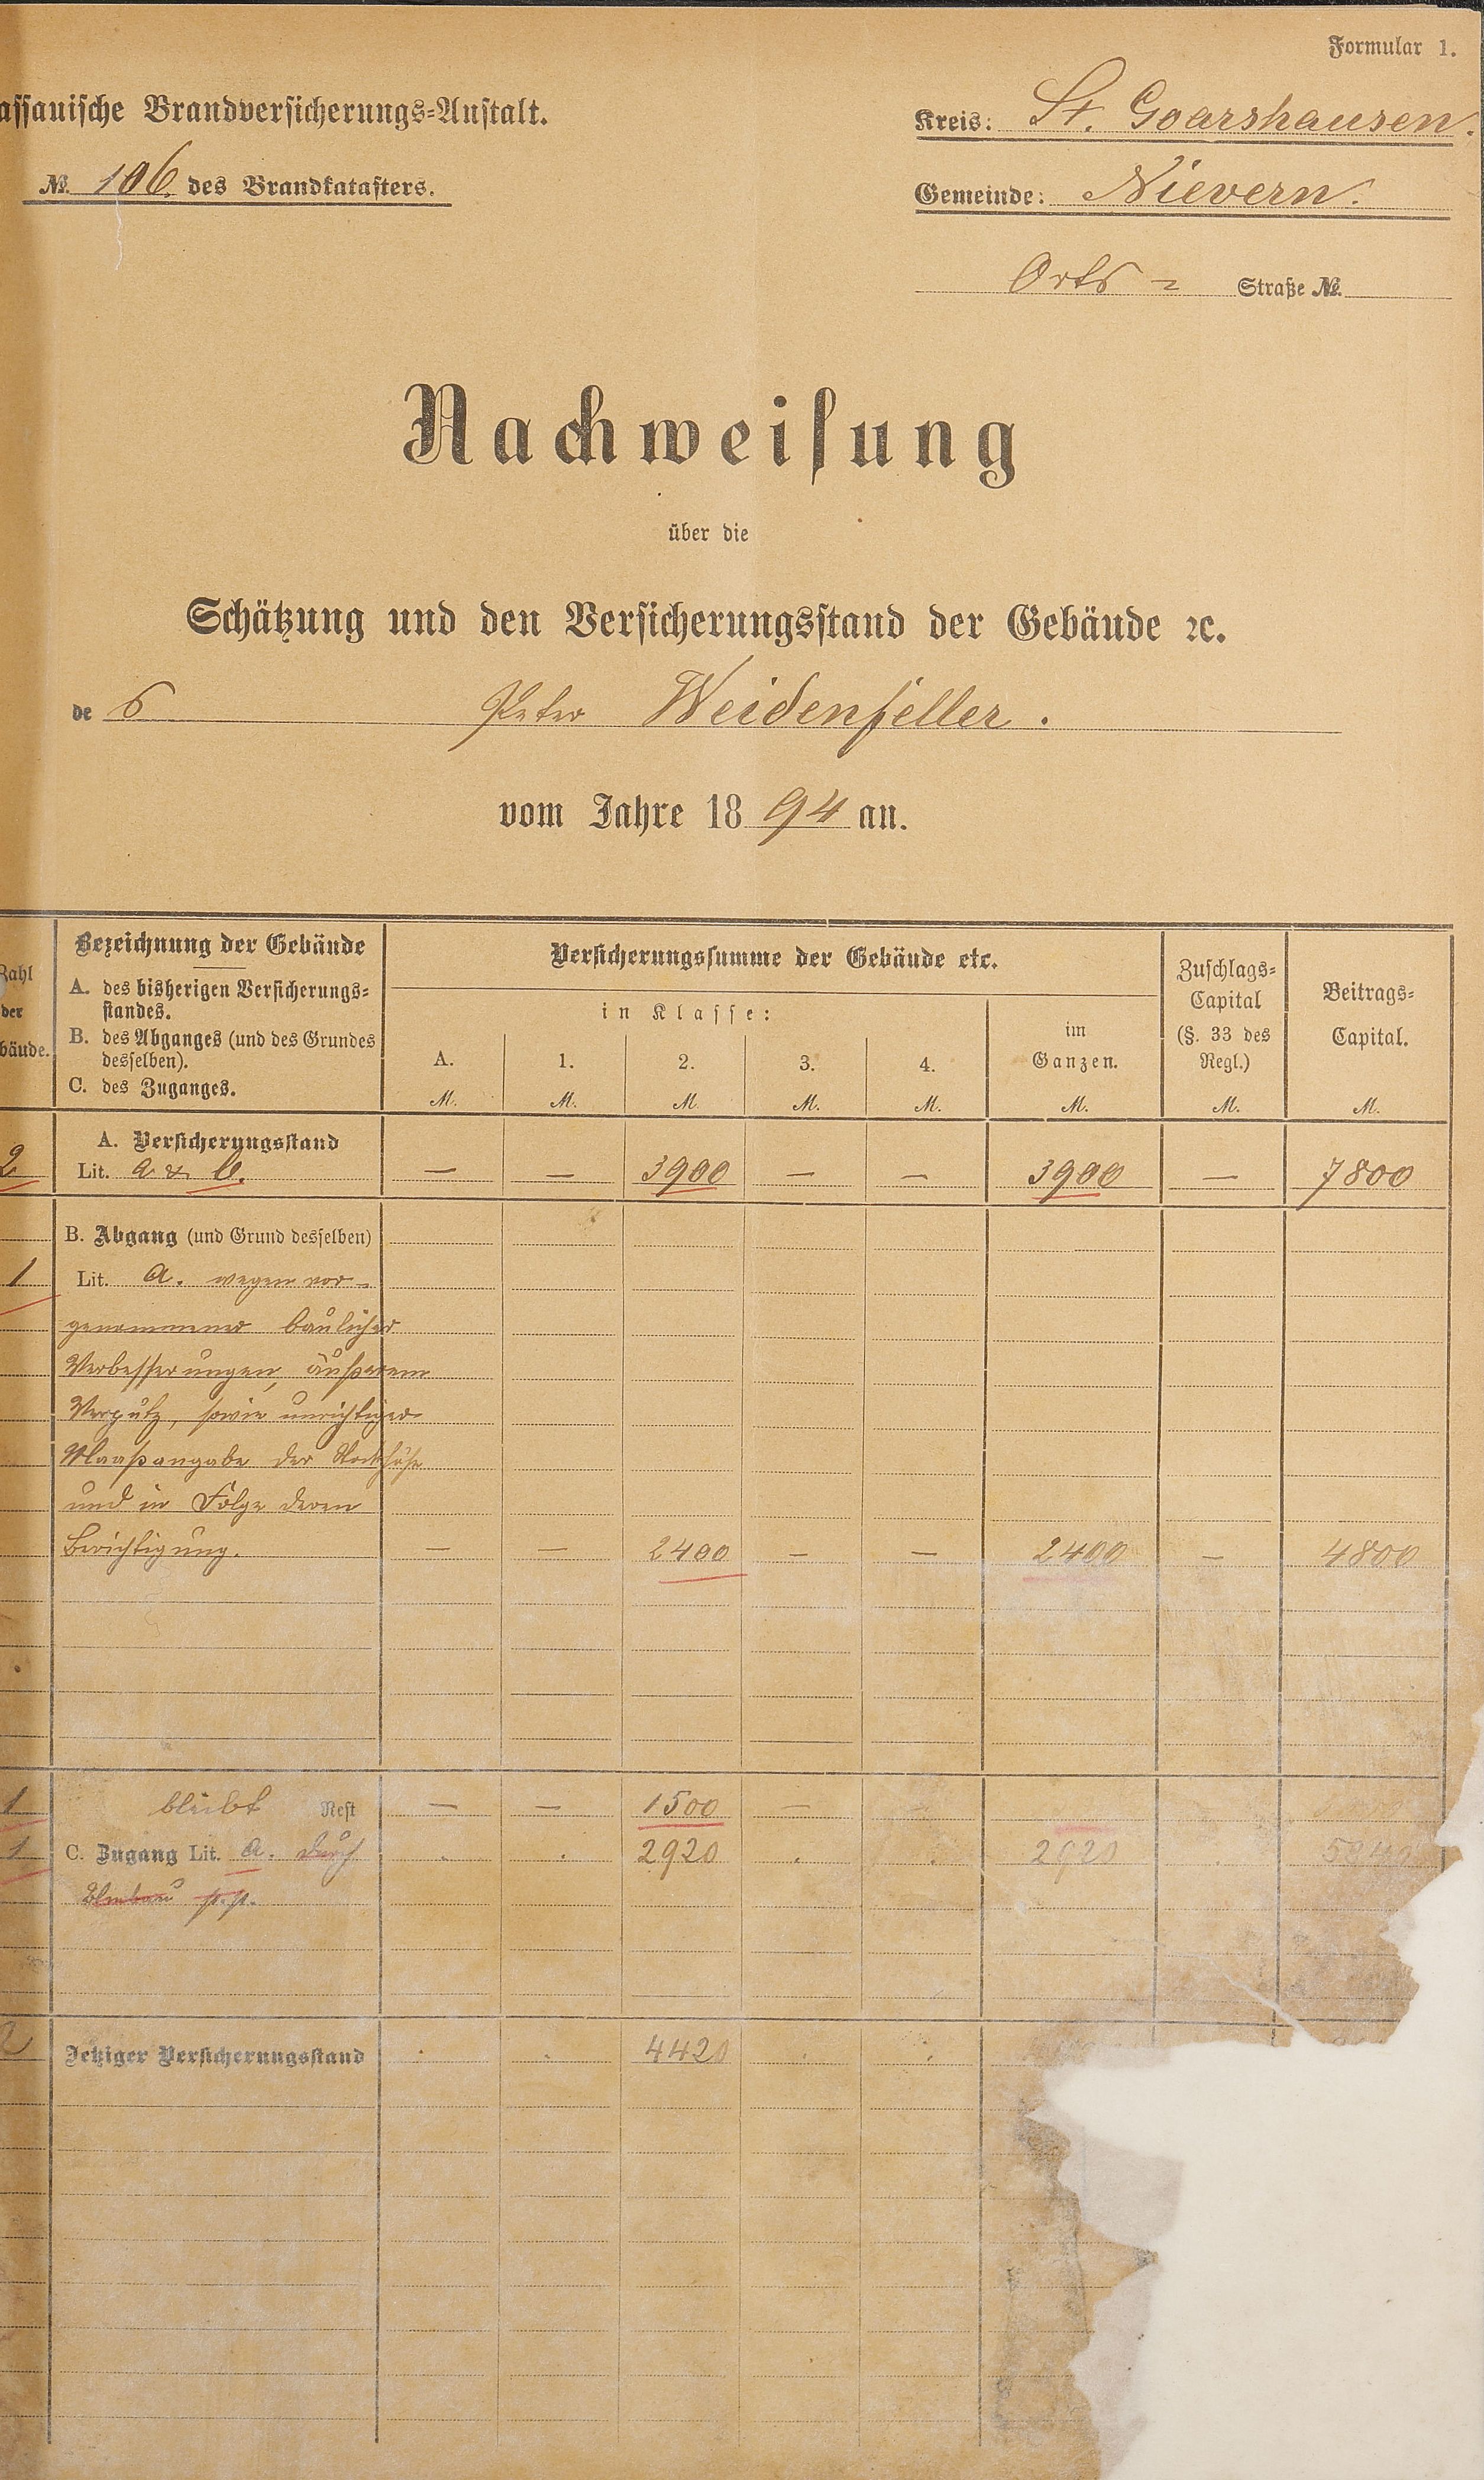 Formular 1.
assanische Brandversicherungs-Anstalt.
Kreis: St. Goarshausen.
№ 106 des Brandkatasters.
Gemeinde: Nievern.
Orts = Straße №
Nachweisung
über die
Schätzung und den Versicherungsstand der Gebäude ꝛc.
de s Peter Weidenfeller.
vom Jahre 1894 an.
Zahl der bäude.
Bezeichnung der Gebäude
A. des bisherigen Versicherungs=
standes.
B. des Abganges (und des Grundes
desselben).
C. des Zuganges.
Versicherungssumme der Gebäude etc.
in Klasse:
A. 1. 2. 3. 4.
im
Ganzen.
Zuschlags=
Capital
(§. 33 des
Regl.)
Beitrags=
Capital.
M. M. M. M. M. M. M. M.
A. Versicherungsstand
2 Lit. a & b. — — 3900 — — 3900 — 7800
B. Abgang (und Grund desselben)
1 Lit. a. wegen vor=
genommener baulicher
Verbesserungen, äußerem
Verputz, sowie unrichtiger
Maaßangabe der Stockhöhe
und in Folge deren
Berichtigung. — — 2400 — — 2400 — 4800
1 bleibt Rest — — 1500 —
1 C. Zugang Lit. a. durch . . 2920 . . 2920 . 5840
p.p.
2 Jetziger Versicherungsstand . . 4420 . .